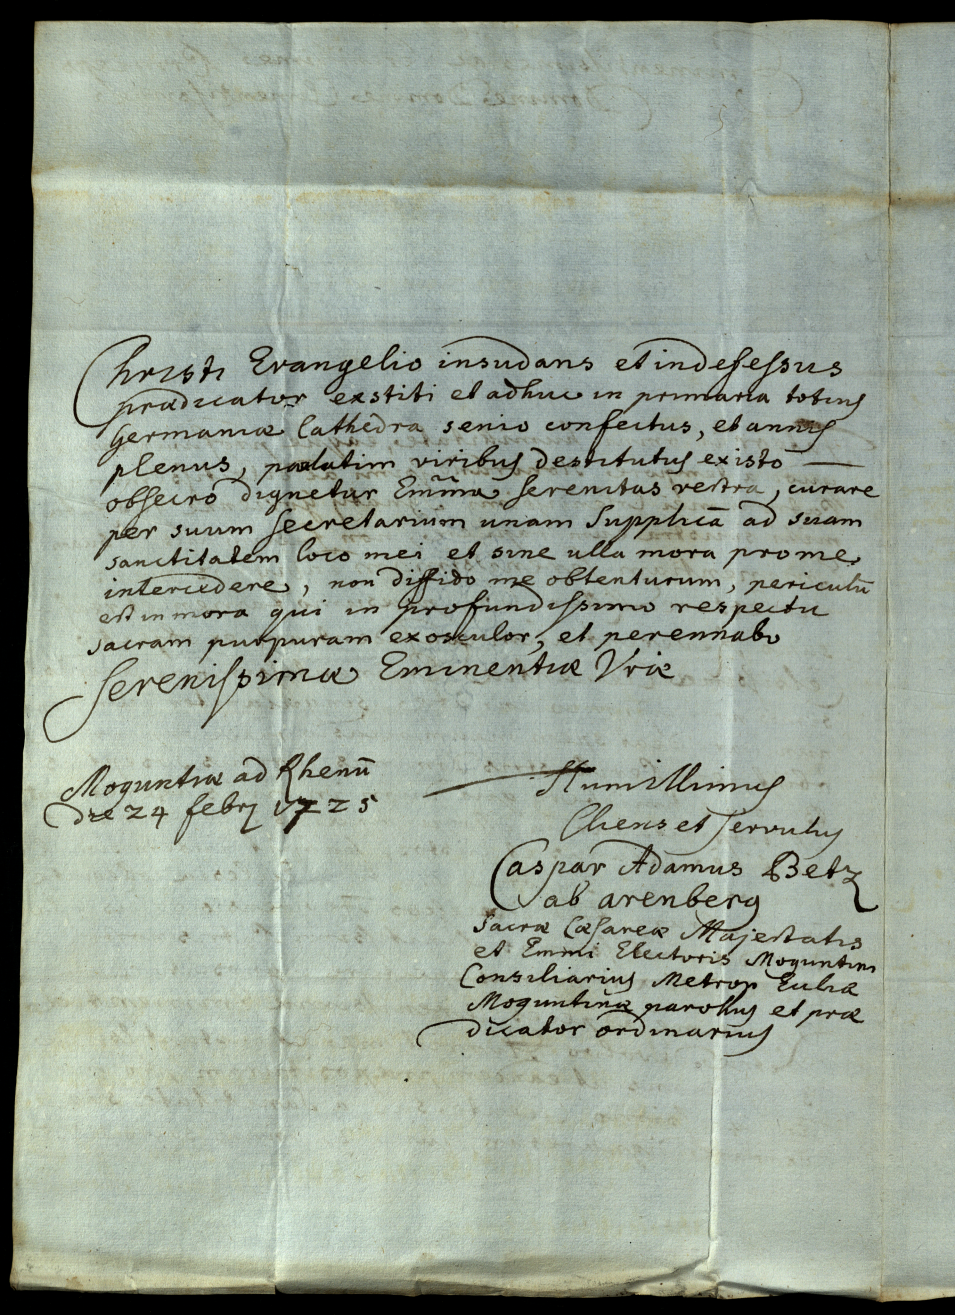 Christi Evangelio insudans et indefessus
prædicator exstiti et adhuc in primaria totius
Germaniæ Cathedra senio confectus, et annis
plenus, paulatim viribus destitutus existo —
obsecro dignetur Em̃ma serenitas vestra, curare
per suum secretarium unam supplicã ad suam
sanctitatem loco mei et sine ulla mora pro me
intercedere, non diffido me obtenturum, periculũ
est in mora qui in profundissimo respectu
sacram purpuram exosculor, et perennabo
Serenissimæ Eminentiæ Vræ
Moguntiæ ad Rhenũ
die 24 febr 1725
Humillimus
Cliens et servulus
Caspar Adamus Betz
ab arenberg
Sacræ Cæsareæ Majestatis
et Emmi Electoris Moguntini
Consiliarius Metrop Eccliæ
Moguntinæ parochus et præ
dicator ordinarius